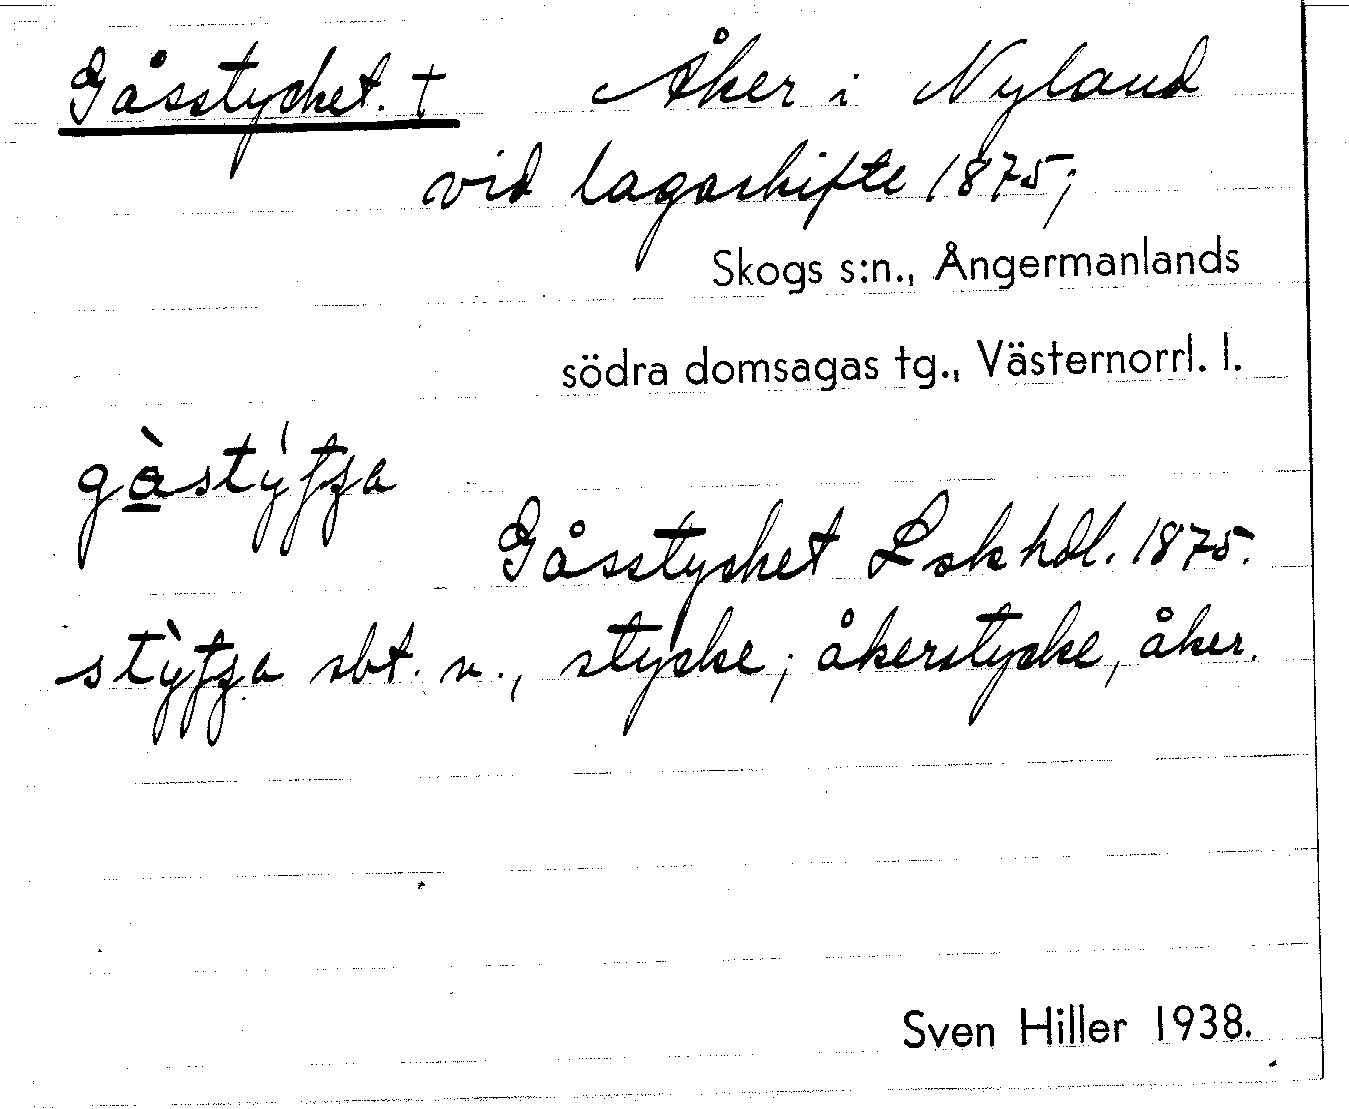 Gåsstycket. † Åker i Nyland
vid lagaskifte 1875;
Skogs s:n., Ångermanlands
södra domsagas tg., Västernorrl. l.
Gåsstycket Lskhdl. 1875.
sbt. n., stycke; åkerstycke, åker.
Sven Hiller 1938.